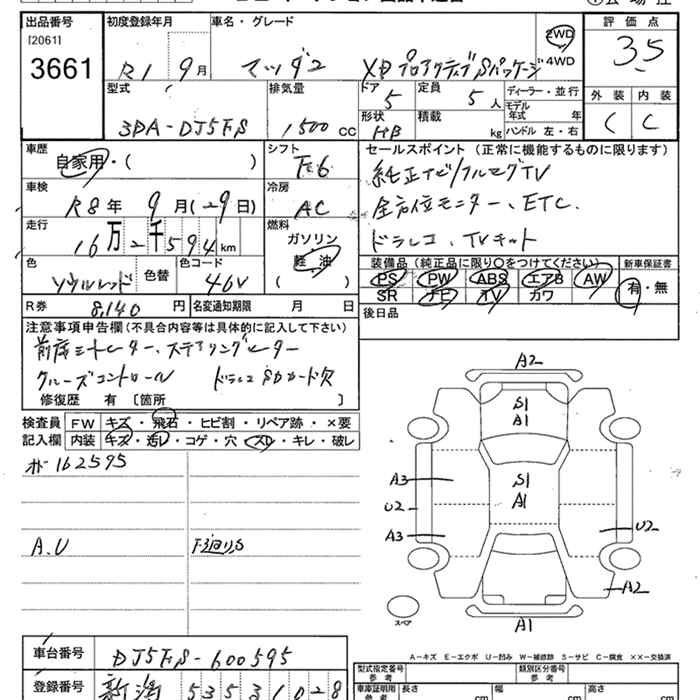 出品番号 初度登録年月 車名・グレード 評価点
[2061]
3661 R1 9月 マツダ2 XD プロアクティブSパッケージ 2WD 4WD 3.5
型式 排気量 ドア 5 定員 5人 ディーラー・並行 外装 内装
3DA-DJ5FS 1500cc 形状 HB 積載 kg モデル年式 年 C C
ハンドル 左・右
車歴 シフト セールスポイント(正常に機能するものに限ります)
自家用・( ) F6 純正ナビ/フルセグTV
車検 冷房 全方位モニター、ETC、
R8年 9月(29日) AC ドラレコ、TVキット
走行 燃料
16万2千594km ガソリン
軽油
( )
色 色替 色コード 装備品(純正品に限り○をつけてください) 新車保証書
ソウルレッド 46V PS PW ABS エアB AW 有・無
SR ナビ TV カワ
R券 8,140円 名変通知期限 月 日 後日品
注意事項申告欄(不具合内容等は具体的に記入して下さい)
前席シートヒーター、ステアリングヒーター
クルーズコントロール ドラレコSDカード欠
修復歴 有〔箇所 〕
検査員 FW キズ・飛石・ヒビ割・リペア跡・×要
記入欄 内装 キズ・汚レ・コゲ・穴・スレ・キレ・破レ
162595
A.U 下廻りS
A2
S1
A1
A3 S1
A1
U2
A3 U2
A2
スペア A1
A-キズ E-エクボ U-凹み W-補修跡 S-サビ C-腐食 ××-交換済
車台番号 DJ5FS-600595 型式指定番号 参考 類別区分番号 参考
登録番号 新潟 535 1028 車庫証明用 参考 長さ cm 幅 cm 高さ cm